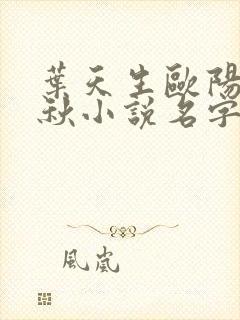 葉天生歐陽
秋小說名字
風嵐